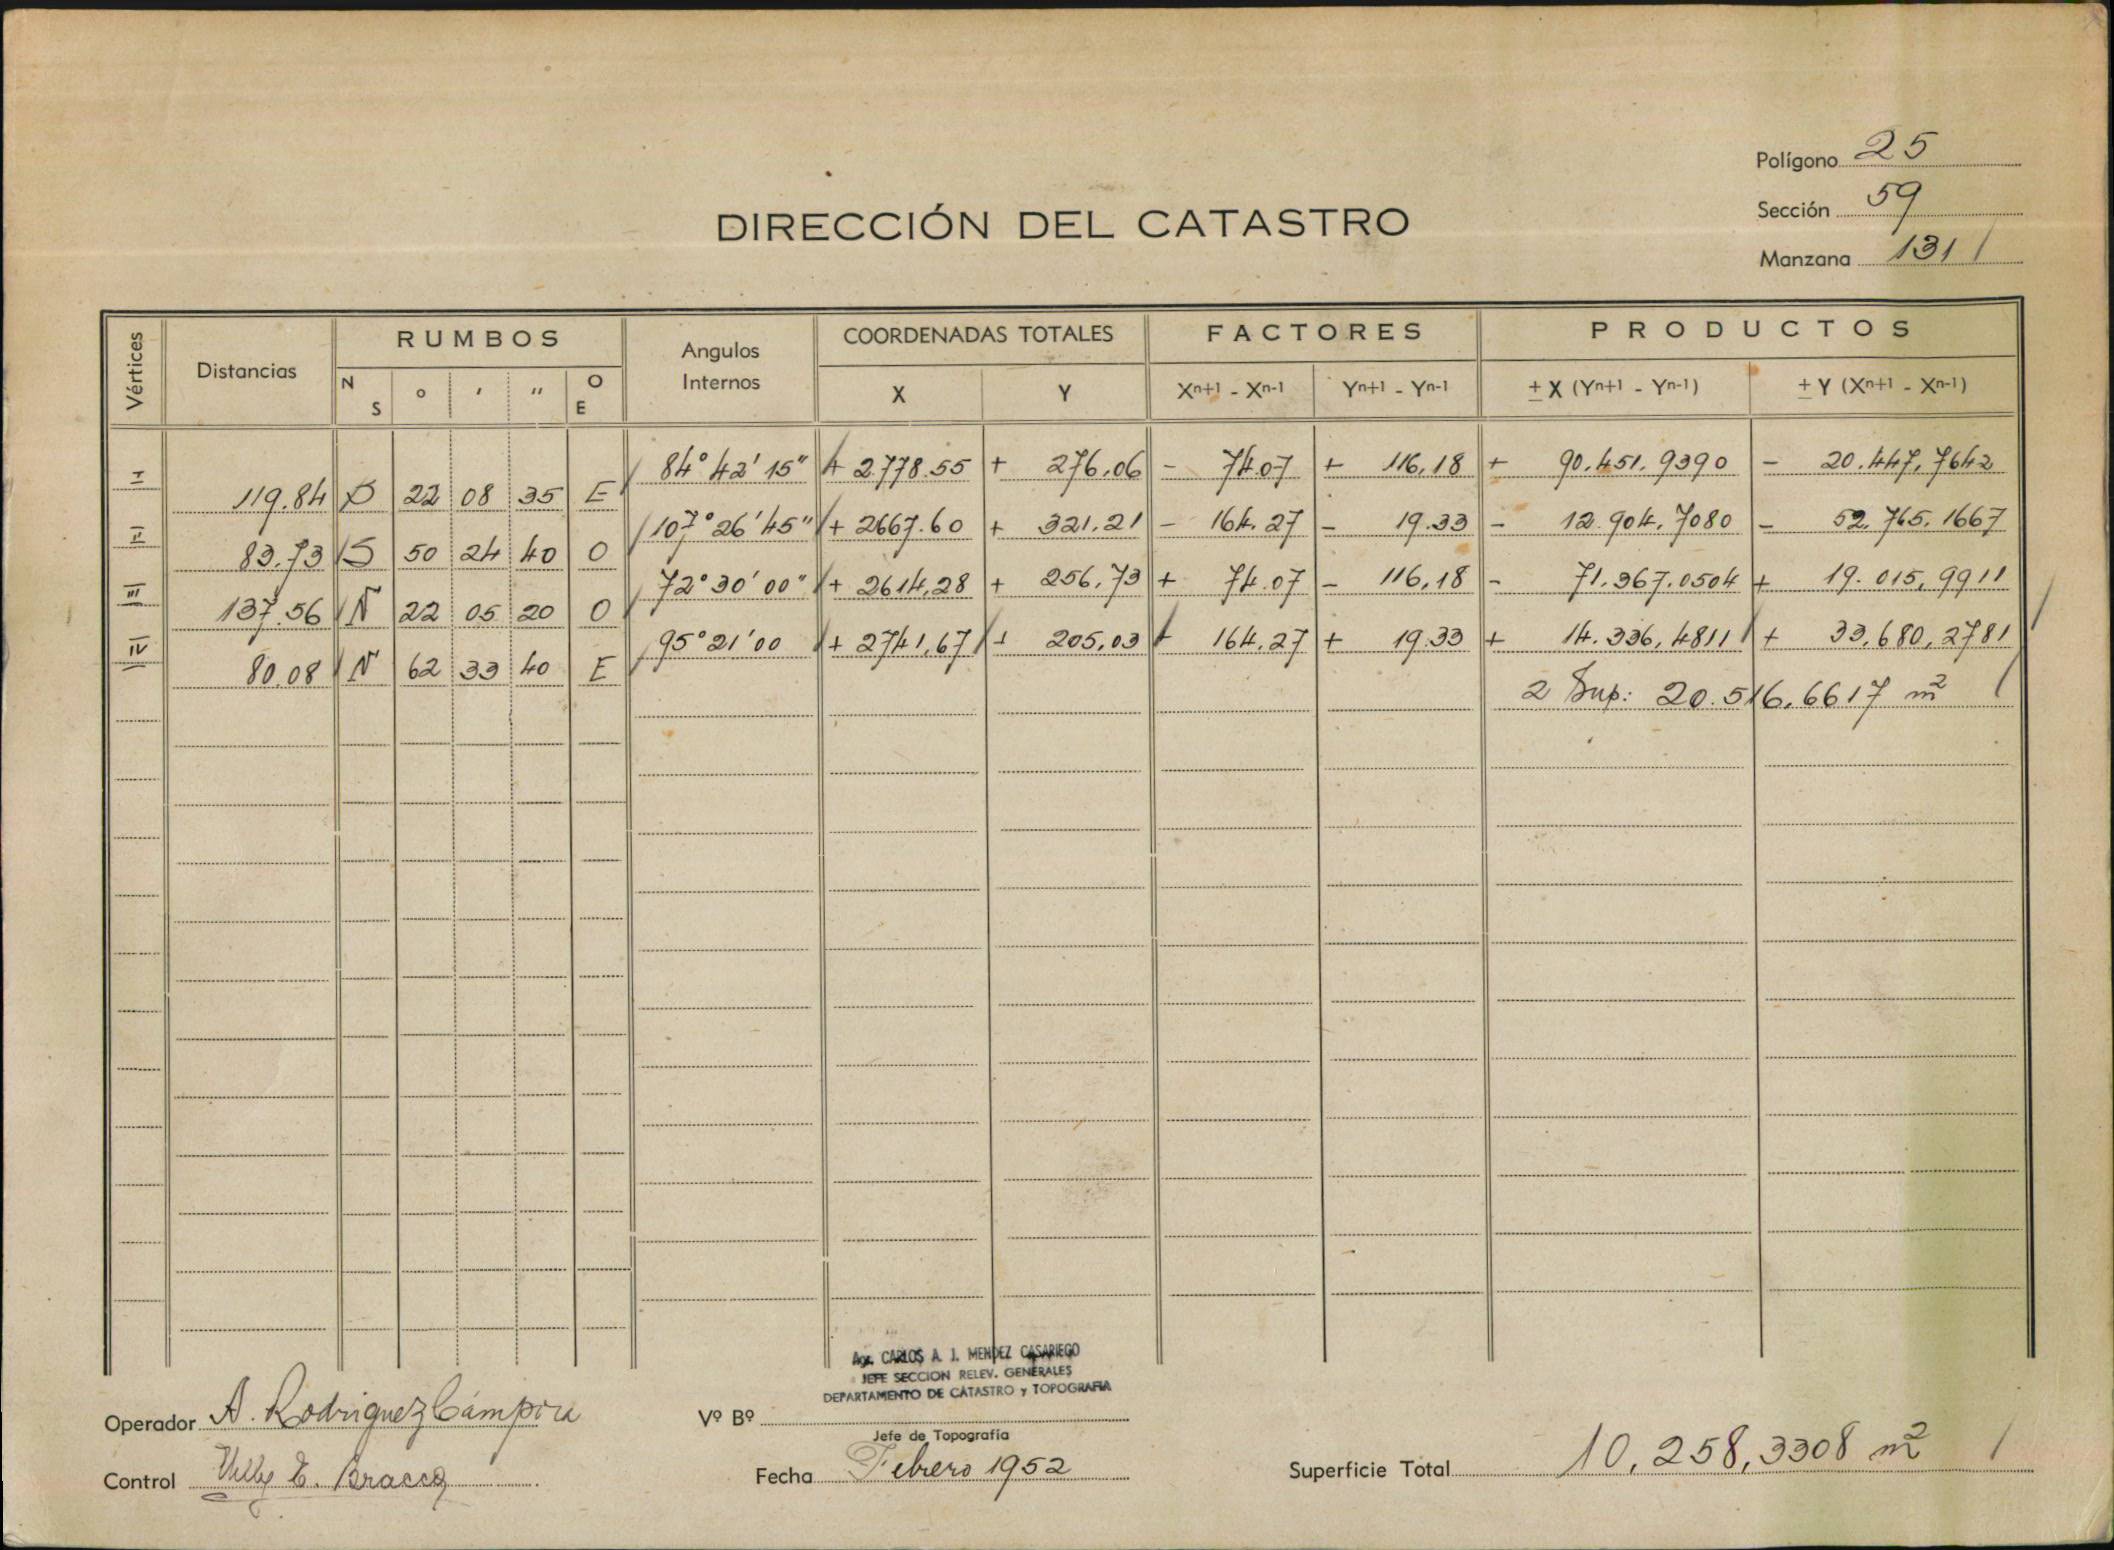 Polígono 25
Sección 59
Manzana 131
DIRECCIÓN DEL CATASTRO
Vértices Distancias RUMBOS Angulos Internos COORDENADAS TOTALES FACTORES PRODUCTOS
N S ° ′ ″ O E X Y Xⁿ⁺¹ - Xⁿ⁻¹ Yⁿ⁺¹ - Yⁿ⁻¹ ± X (Yⁿ⁺¹ - Yⁿ⁻¹) ± Y (Xⁿ⁺¹ - Xⁿ⁻¹)
I 84° 42' 15" + 2778.55 + 276.06 - 74.07 + 116,18 + 90.451.9390 - 20.447,7642
119.84 S 22 08 35 E
II 107° 26' 45" + 2667.60 + 321.21 - 164.27 - 19.33 - 12.904.7080 - 52.765.1667
83.73 S 50 24 40 O
III 72° 30' 00" + 2614,28 + 256.73 + 74.07 - 116,18 - 71.367.0504 + 19.015,9911
137.56 N 22 05 20 O
IV 95° 21' 00 + 2741,67 + 205,03 + 164,27 + 19.33 + 14.336,4811 + 33.680,2781
80.08 N 62 33 40 E
2 Sup: 20.516,6617 m²
Agr. CARLOS A. J. MENDEZ CASARIEGO
JEFE SECCION RELEV. GENERALES
DEPARTAMENTO DE CATASTRO y TOPOGRAFIA
Operador A. Rodriguez Cámpora
Vº Bº
Jefe de Topografía
Control E. Bracco
Fecha Febrero 1952
Superficie Total 10.258,3308 m²